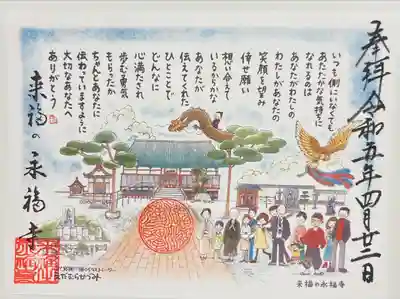 奉拝 令和五年四月廿二日
いつも側にいなくても
あたたかな気持ちに
なれるのは
あなたがわたしの
わたしがあなたの
笑顔を望み
倖せ願い
想い合えて
いるからかな
あなたが
伝えてくれた
ひとことで
どんなに
心満たされ
歩む勇気
もらったか
ちゃんとあなたに
伝わっていますように
大切なあなたへ
ありがとう
来福の永福寺
来福の永福寺